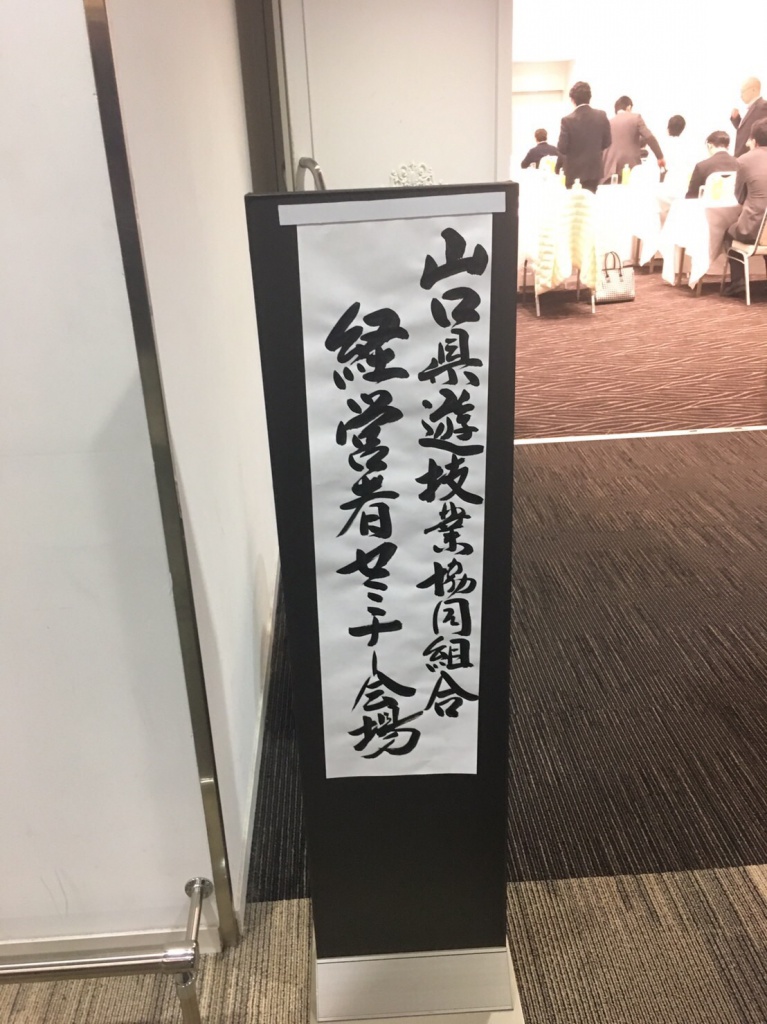 山口県遊技業協同組合
経営者セミナー会場